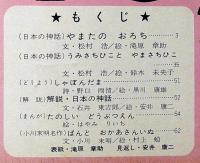 ★もくじ★
(日本の神話)やまたの おろち……3
文・松村 浩/絵・滝原 章助
(日本の神話)うみさちひこと やまさちひこ
……35
文・松村 浩/絵・鈴木 未央子
(どうよう)しゃぼんだま……51
詩・野口 雨情/絵・黒川 康雄
(解 説)解説・日本の神話……52
文・石井 東治郎/絵・安井 康二
(まんが)たのしい どうぶつえん……54
絵・はやみ りいち
(小川未明名作)ぱんと おかあさんいぬ……62
文・小川 未明/絵・村上 勉
表紙・滝原 章助 見返し・安井 康二